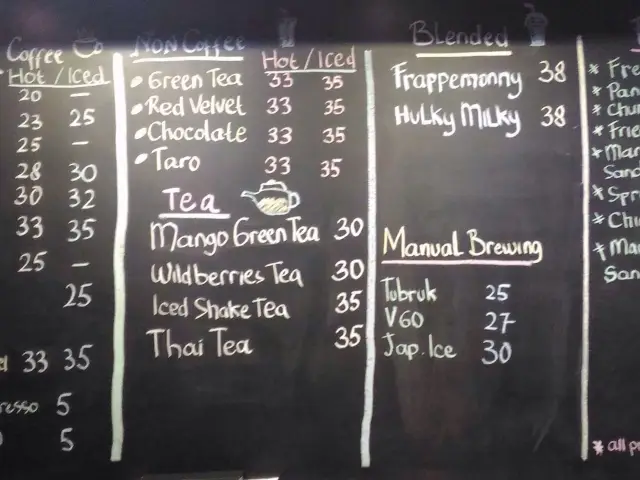 Coffee
Hot / Iced
20 —
23 25
25 —
28 30
30 32
33 35
25 —
25
33 35
5
5
NON Coffee
Hot / Iced
Green Tea 33 35
Red Velvet 33 35
Chocolate 33 35
Taro 33 35
Tea
Mango Green Tea 30
Wildberries Tea 30
Iced Shake Tea 35
Thai Tea 35
Blended
Frappemonny 38
Hulky Milky 38
Manual Brewing
Tubruk 25
V60 27
Jap. Ice 30
* Fre
* Pan
* Chu
* Frie
* Mar
San
* Spr
* Chu
* Ma
San
* all p